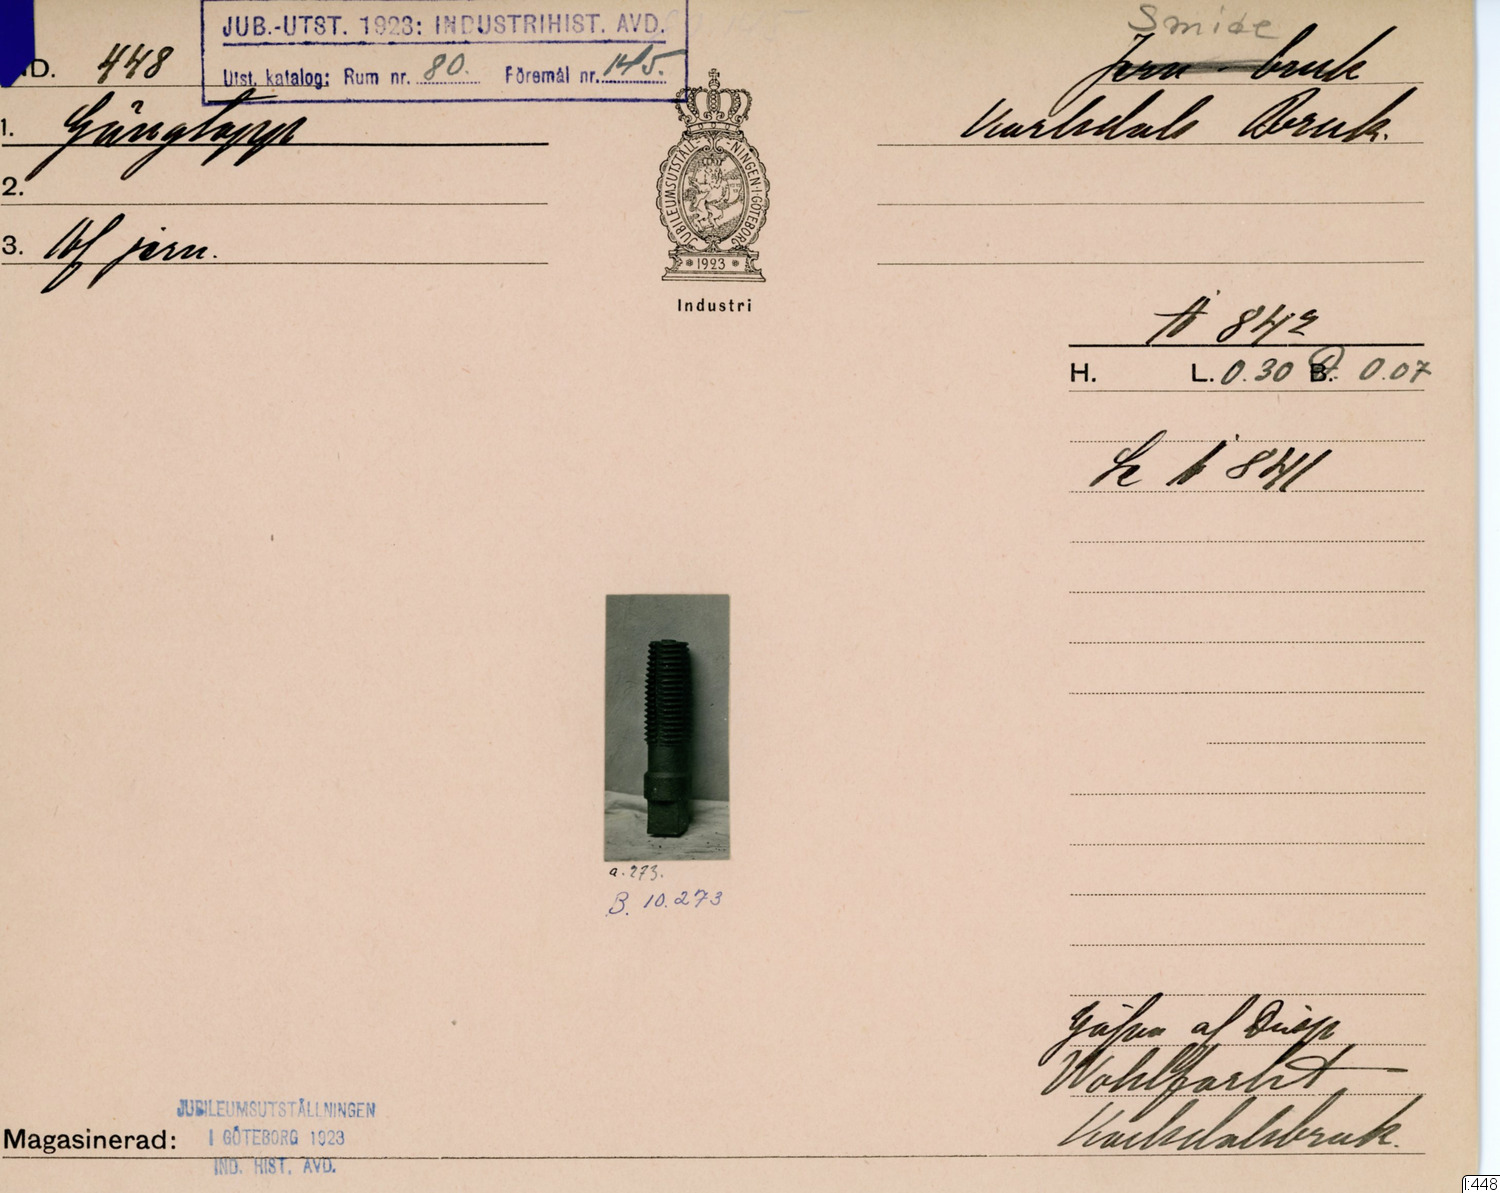 JUB.-UTST. 1923: INDUSTRIHIST. AVD.
Utst. katalog: Rum nr. 80. Föremål nr. 145.
ID. 448
Smide
Jern-bruk
1. Gängtapp
Karlsdals Bruk.
2.
3. Af jern.
JUBILEUMSUTSTÄLLNINGEN·I·GÖTEBORG
1923
Industri
842
H. L. 0.30 B. D 0.07
Se 841
a.273.
B. 10.273
Gåfva af Disp
Wohlfarht
Karlsdalsbruk.
Magasinerad:
JUBILEUMSUTSTÄLLNINGEN
I GÖTEBORG 1923
IND. HIST. AVD.
I:448